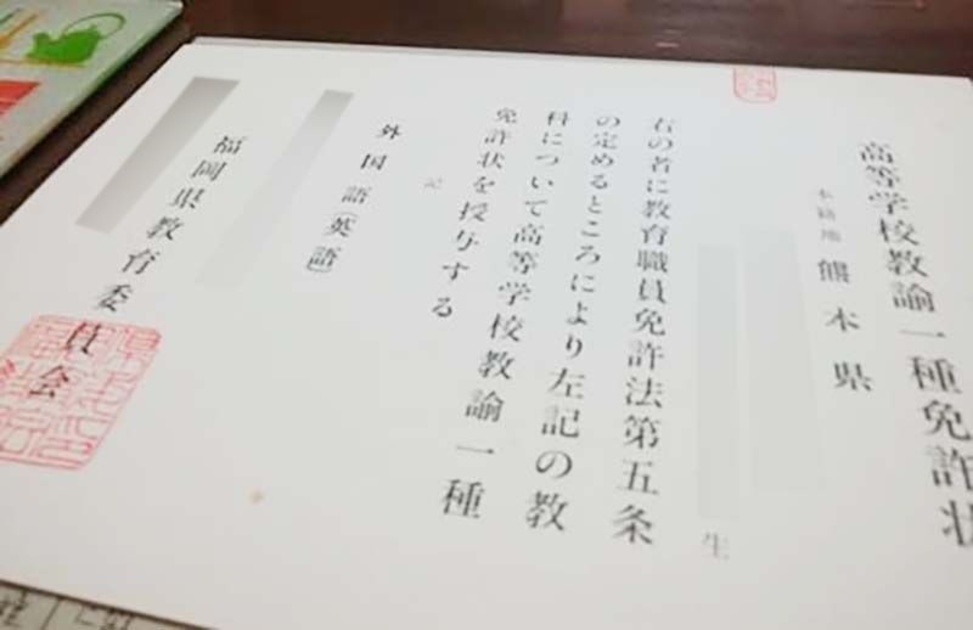 高等学校教諭一種免許状
本籍地 熊本県
生
右の者に教育職員免許法第五条
の定めるところにより左記の教
科について高等学校教諭一種
免許状を授与する
記
外国語(英語)
福岡県教育委員会